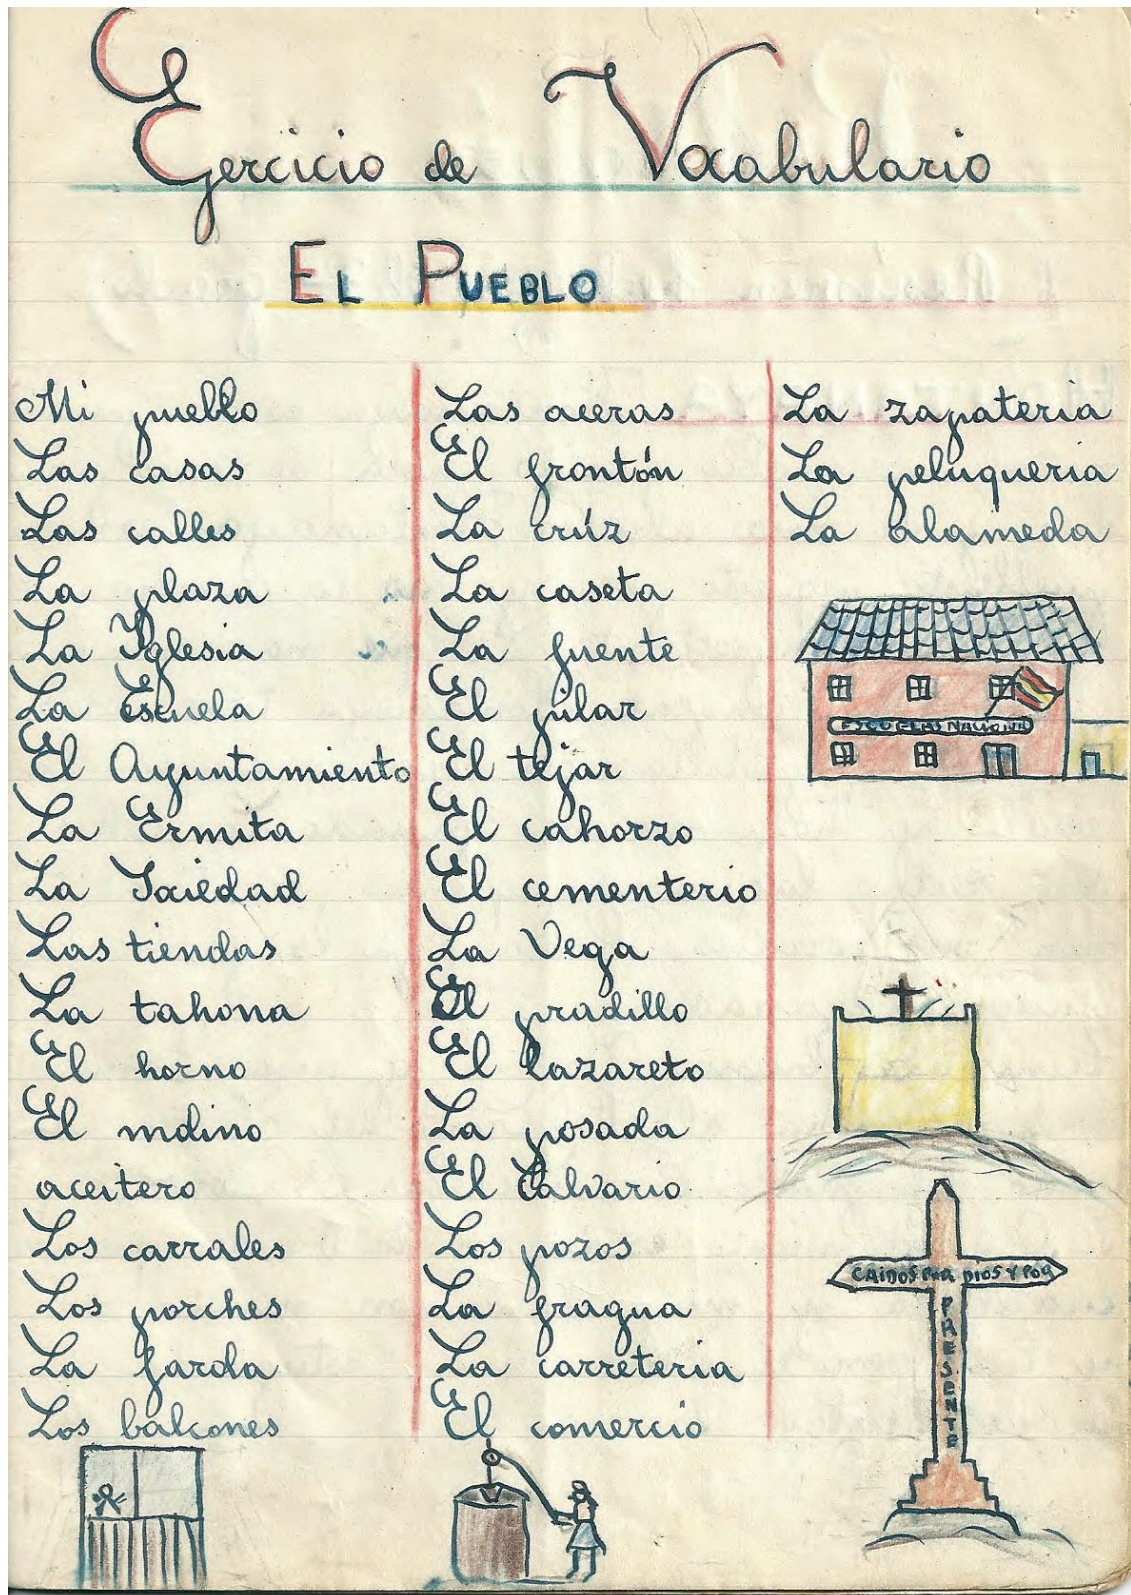 Ejercicio de Vocabulario
EL PUEBLO
Mi pueblo
Las casas
Las calles
La plaza
La Iglesia
La Escuela
El Ayuntamiento
La Ermita
La Sociedad
Las tiendas
La tahona
El horno
El molino
aceitero
Los carrales
Los porches
La farola
Los balcones
Las aceras
El frontón
La crúz
La caseta
La fuente
El pilar
El tejar
El cahorzo
El cementerio
La Vega
El pradillo
El lazareto
La posada
El Calvario
Los pozos
La fragua
La carreteria
El comercio
La zapateria
La peluqueria
La alameda
ESCUELAS NACIONAL
CAIDOS POR DIOS Y POR
PRESENTE